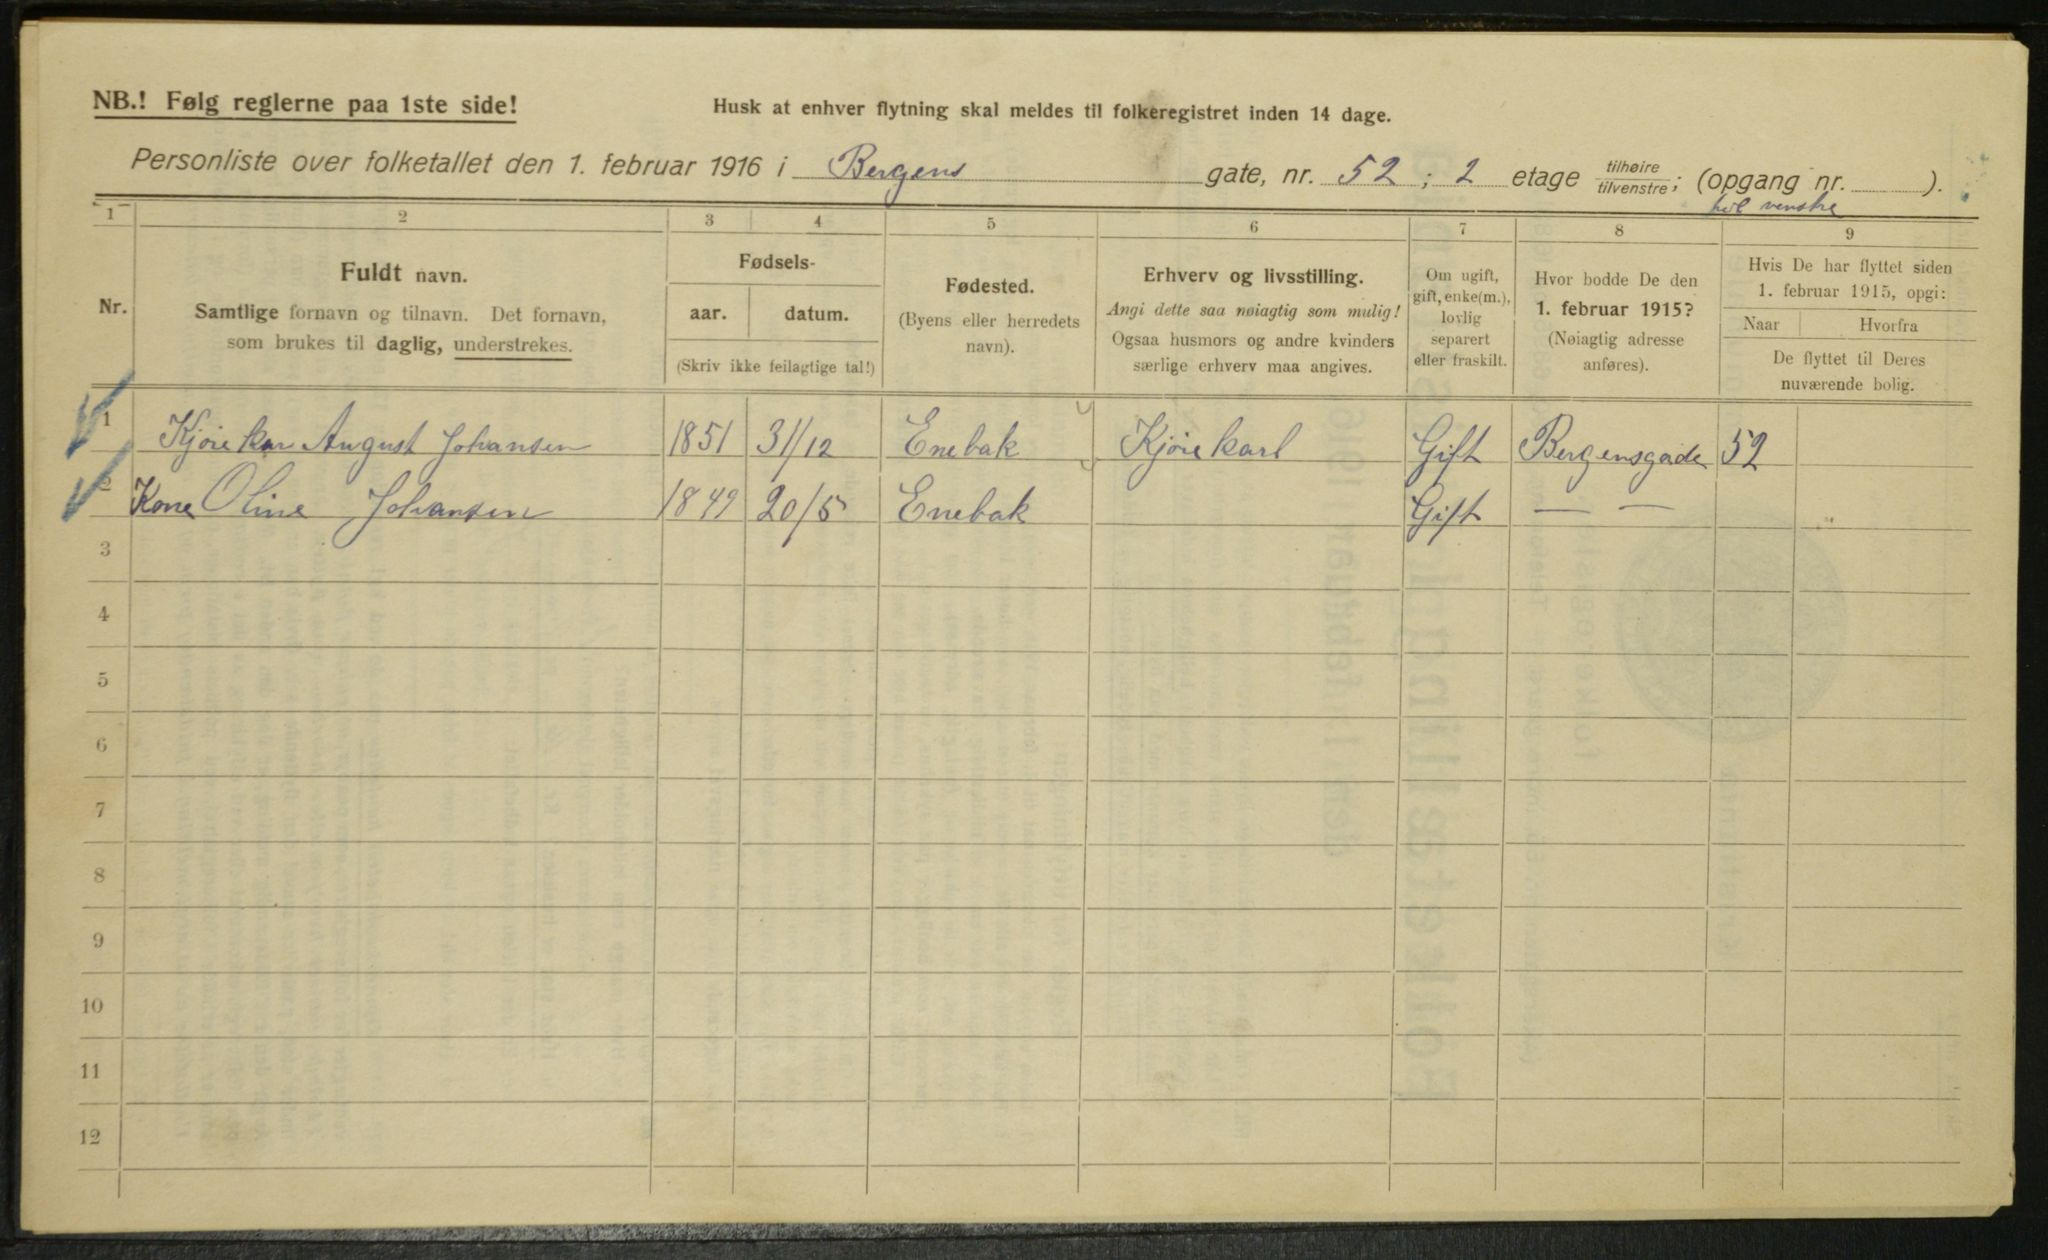 NB.! Følg reglerne paa 1ste side!
Husk at enhver flytning skal meldes til folkeregistret inden 14 dage.
Personliste over folketallet den 1. februar 1916 i Bergens gate, nr. 52; 2 etage tilhøire/tilvenstre; (opgang nr. ).
til venstre
1 2 3 4 5 6 7 8 9
Nr.
Fuldt navn.
Samtlige fornavn og tilnavn. Det fornavn,
som brukes til daglig, understrekes.
Fødsels-
aar. datum.
(Skriv ikke feilagtige tal!)
Fødested.
(Byens eller herredets
navn).
Erhverv og livsstilling.
Angi dette saa nøiagtig som mulig!
Ogsaa husmors og andre kvinders
særlige erhverv maa angives.
Om ugift,
gift, enke(m.),
lovlig
separert
eller fraskilt.
Hvor bodde De den
1. februar 1915?
(Nøiagtig adresse
anføres).
Hvis De har flyttet siden
1. februar 1915, opgi:
Naar Hvorfra
De flyttet til Deres
nuværende bolig.
1 Kjørekar August Johansen 1851 31/12 Enebak Kjørekarl Gift Bergensgade 52
2 Kone Oline Johansen 1849 20/5 Enebak Gift — —
3
4
5
6
7
8
9
10
11
12